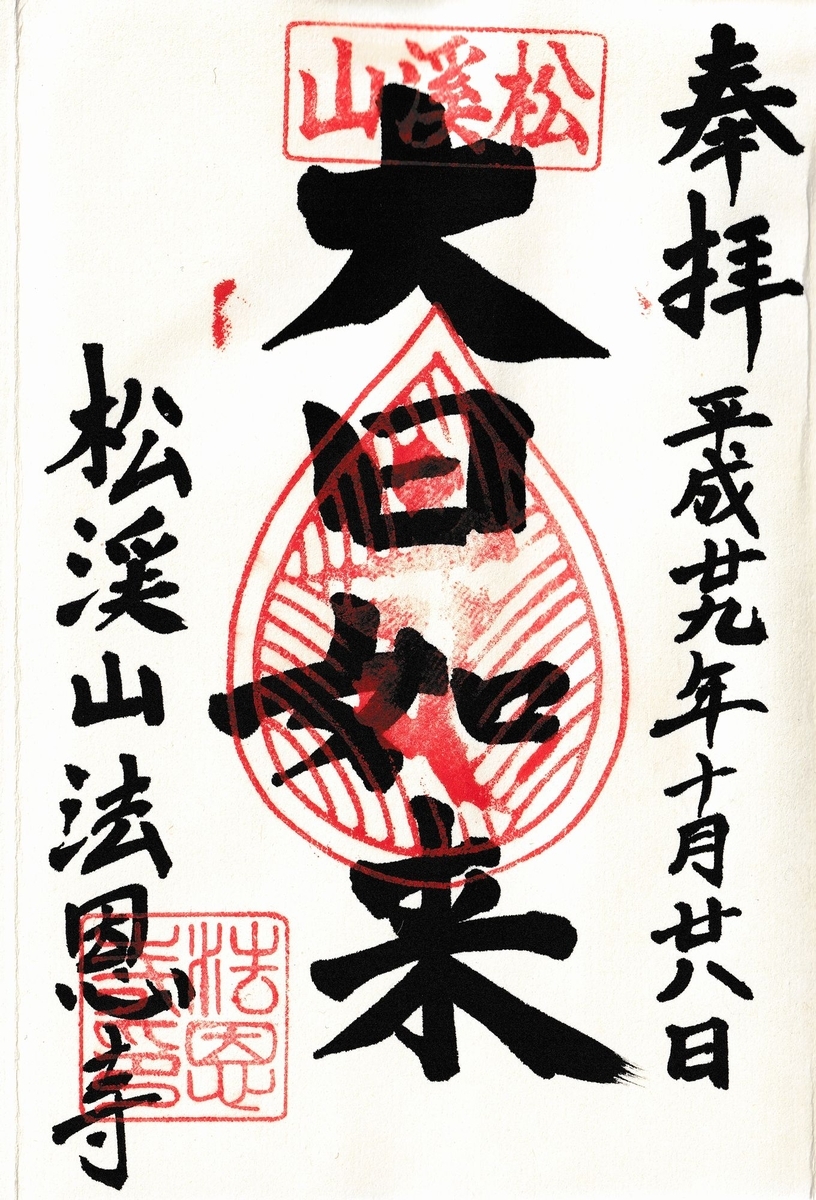 奉拝 平成廿九年十月廿八日
松渓山
大日如来
松渓山法恩寺
法恩寺印